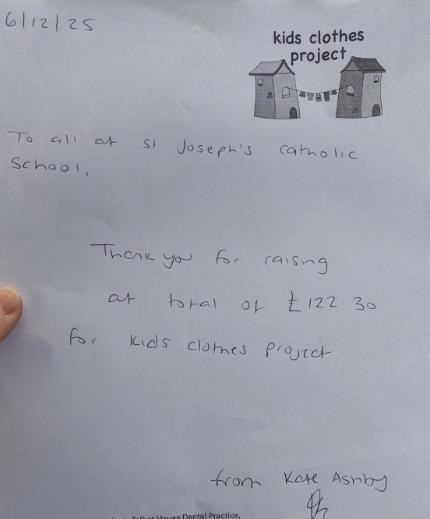 6/12/25
kids clothes
project
To all at St Joseph's catholic
School,
Thank you for raising
at total of £122.30
for kids clothes project
from Kate Ashby
House Dental Practice,